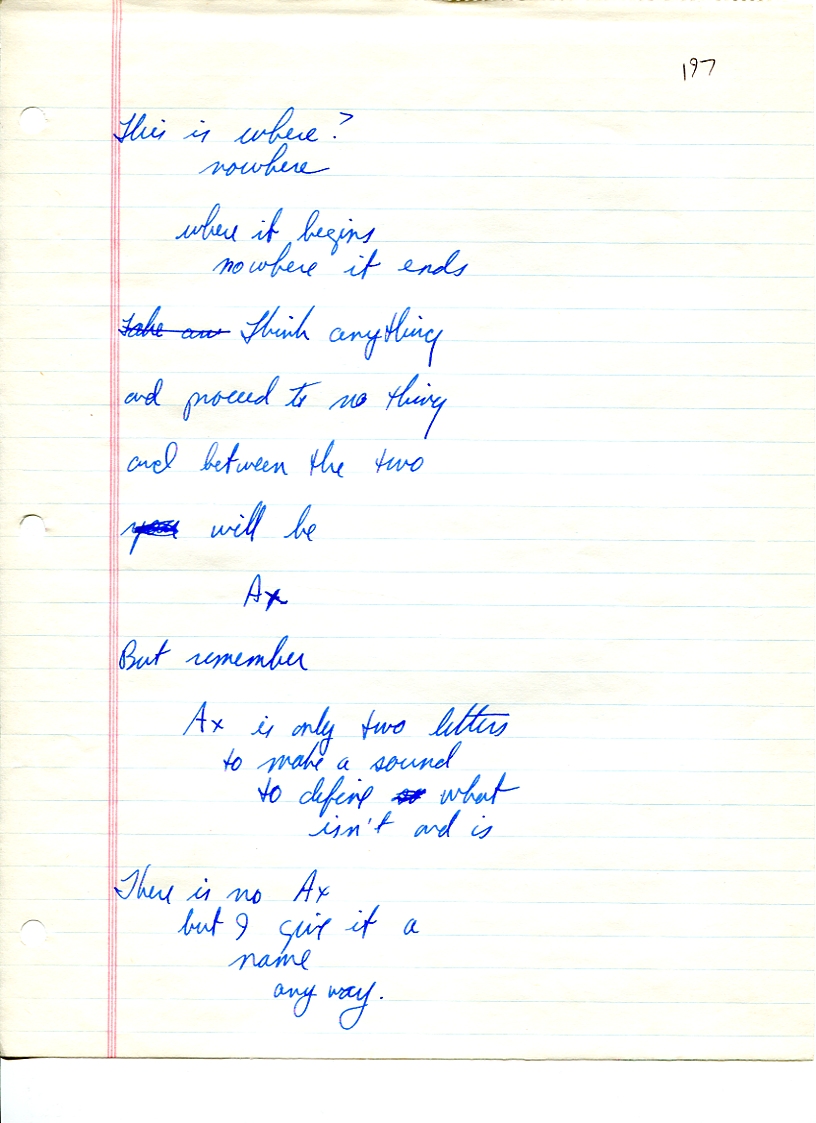 197
This is where?
nowhere
where it begins
nowhere it ends
Take an Think anything
and proceed to no thing
and between the two
you will be
Ax
But remember
Ax is only two letters
to make a sound
to define what
isn't and is
There is no Ax
but I give it a
name
any way.